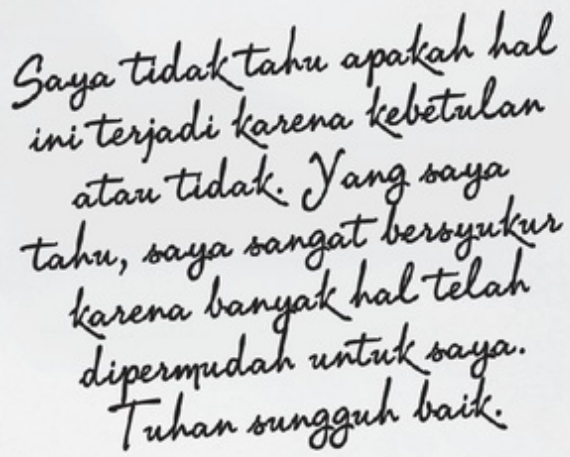 Saya tidak tahu apakah hal
ini terjadi karena kebetulan
atau tidak. Yang saya
tahu, saya sangat bersyukur
karena banyak hal telah
dipermudah untuk saya.
Tuhan sungguh baik.